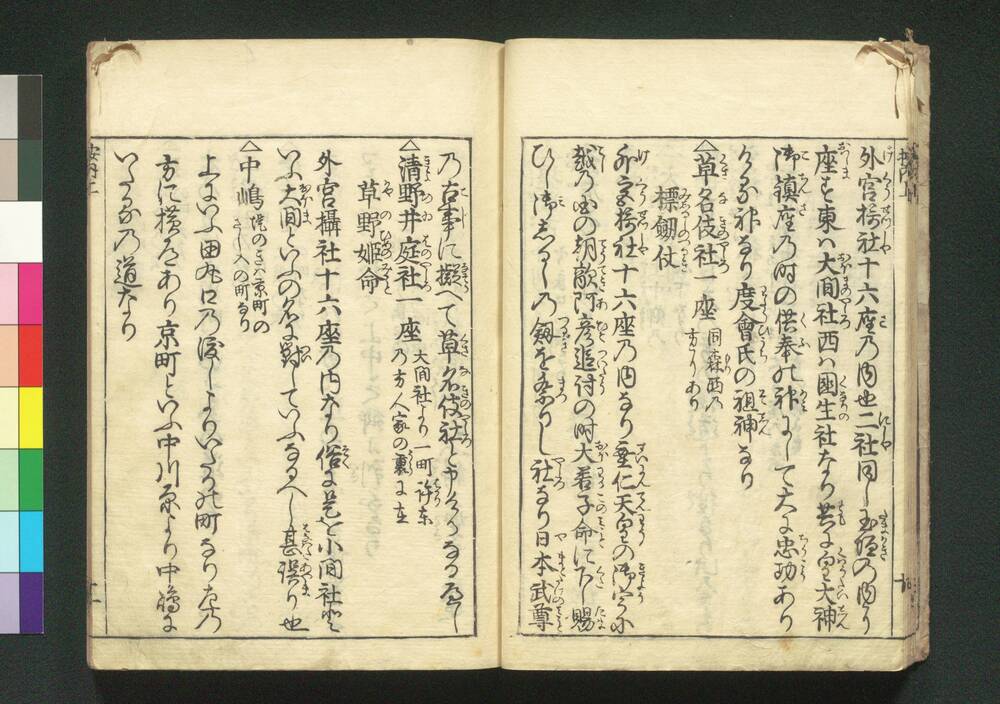 外宮摂社十六座乃内也二社同し玉垣の内に
座す東ハ大間社西ハ國生社なり共に皇大神
御鎮座乃時の供奉の神にして大に忠功あり
ける神なり度會氏の祖神なり
△草名伎社一座 同森西乃方にあり
標劔仗
外宮摂社十六座乃内なり垂仁天皇の御宇に
越乃国の朝敵阿彦追討の時大若子命に下し賜
ひし御志るしの劔を祭りし社なり日本武尊
乃古事に擬へて草名伎社と申けるなるべし
△清野井庭社一座 大間社より一町許東乃方人家の裏に在
草野姫命
外宮攝社十六座乃内なり俗に是を小間社と
いふ大間といふの名に對していふなるへし甚誤り也
△中嶋
上にいふ田丸口乃渡しよりいたる町なり左乃
方に横道あり京町といふ中川原より中嶋に
いたる乃道なり